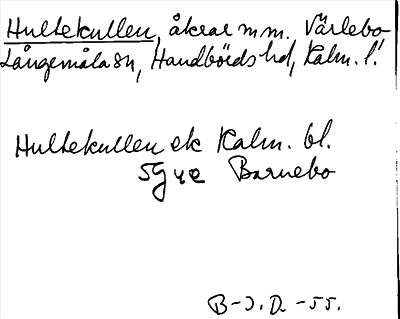 Hultekullen, åkrar m m. Värlebo
Långemåla sn, Handbörds hd, Kalm. l.
Hultekullen ek Kalm. bl.
5G 4e Barnebo
B-J. D. -55.